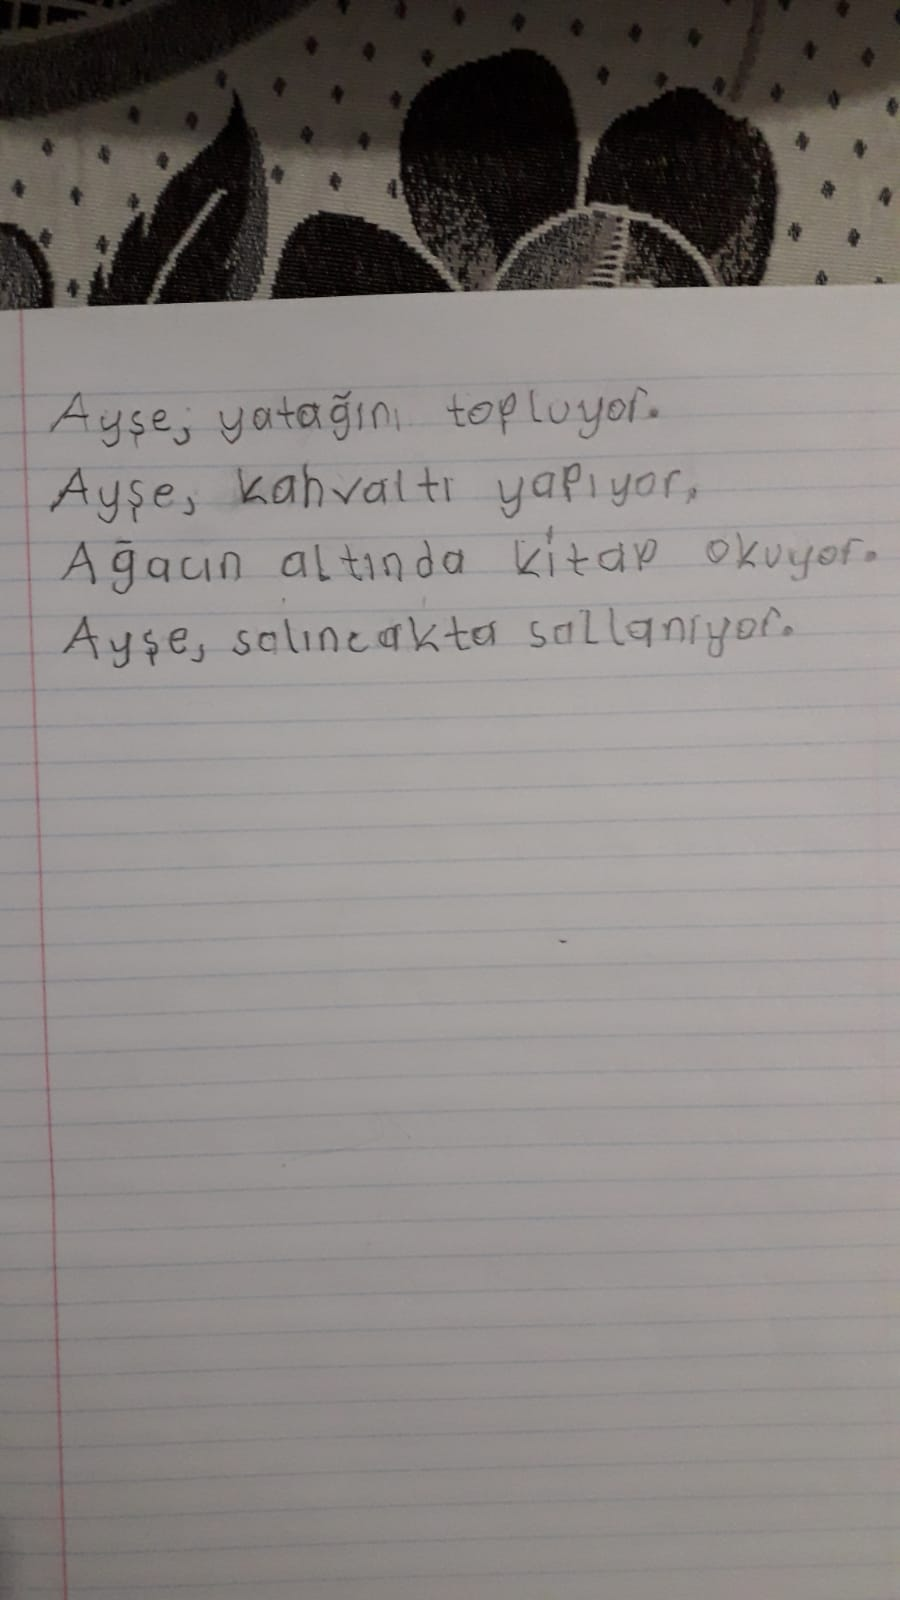 Ayşe, yatağını topluyor.
Ayşe, kahvaltı yapıyor.
Ağacın altında kitap okuyor.
Ayşe, salıncakta sallanıyor.